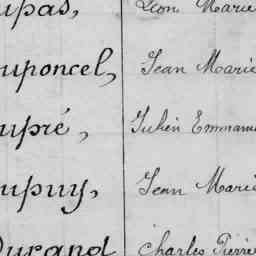 upas, Léon Marie
uponcel, Jean Marie
upré, Julien Emmanu
upuy, Jean Marie
Durand Charles Pierre